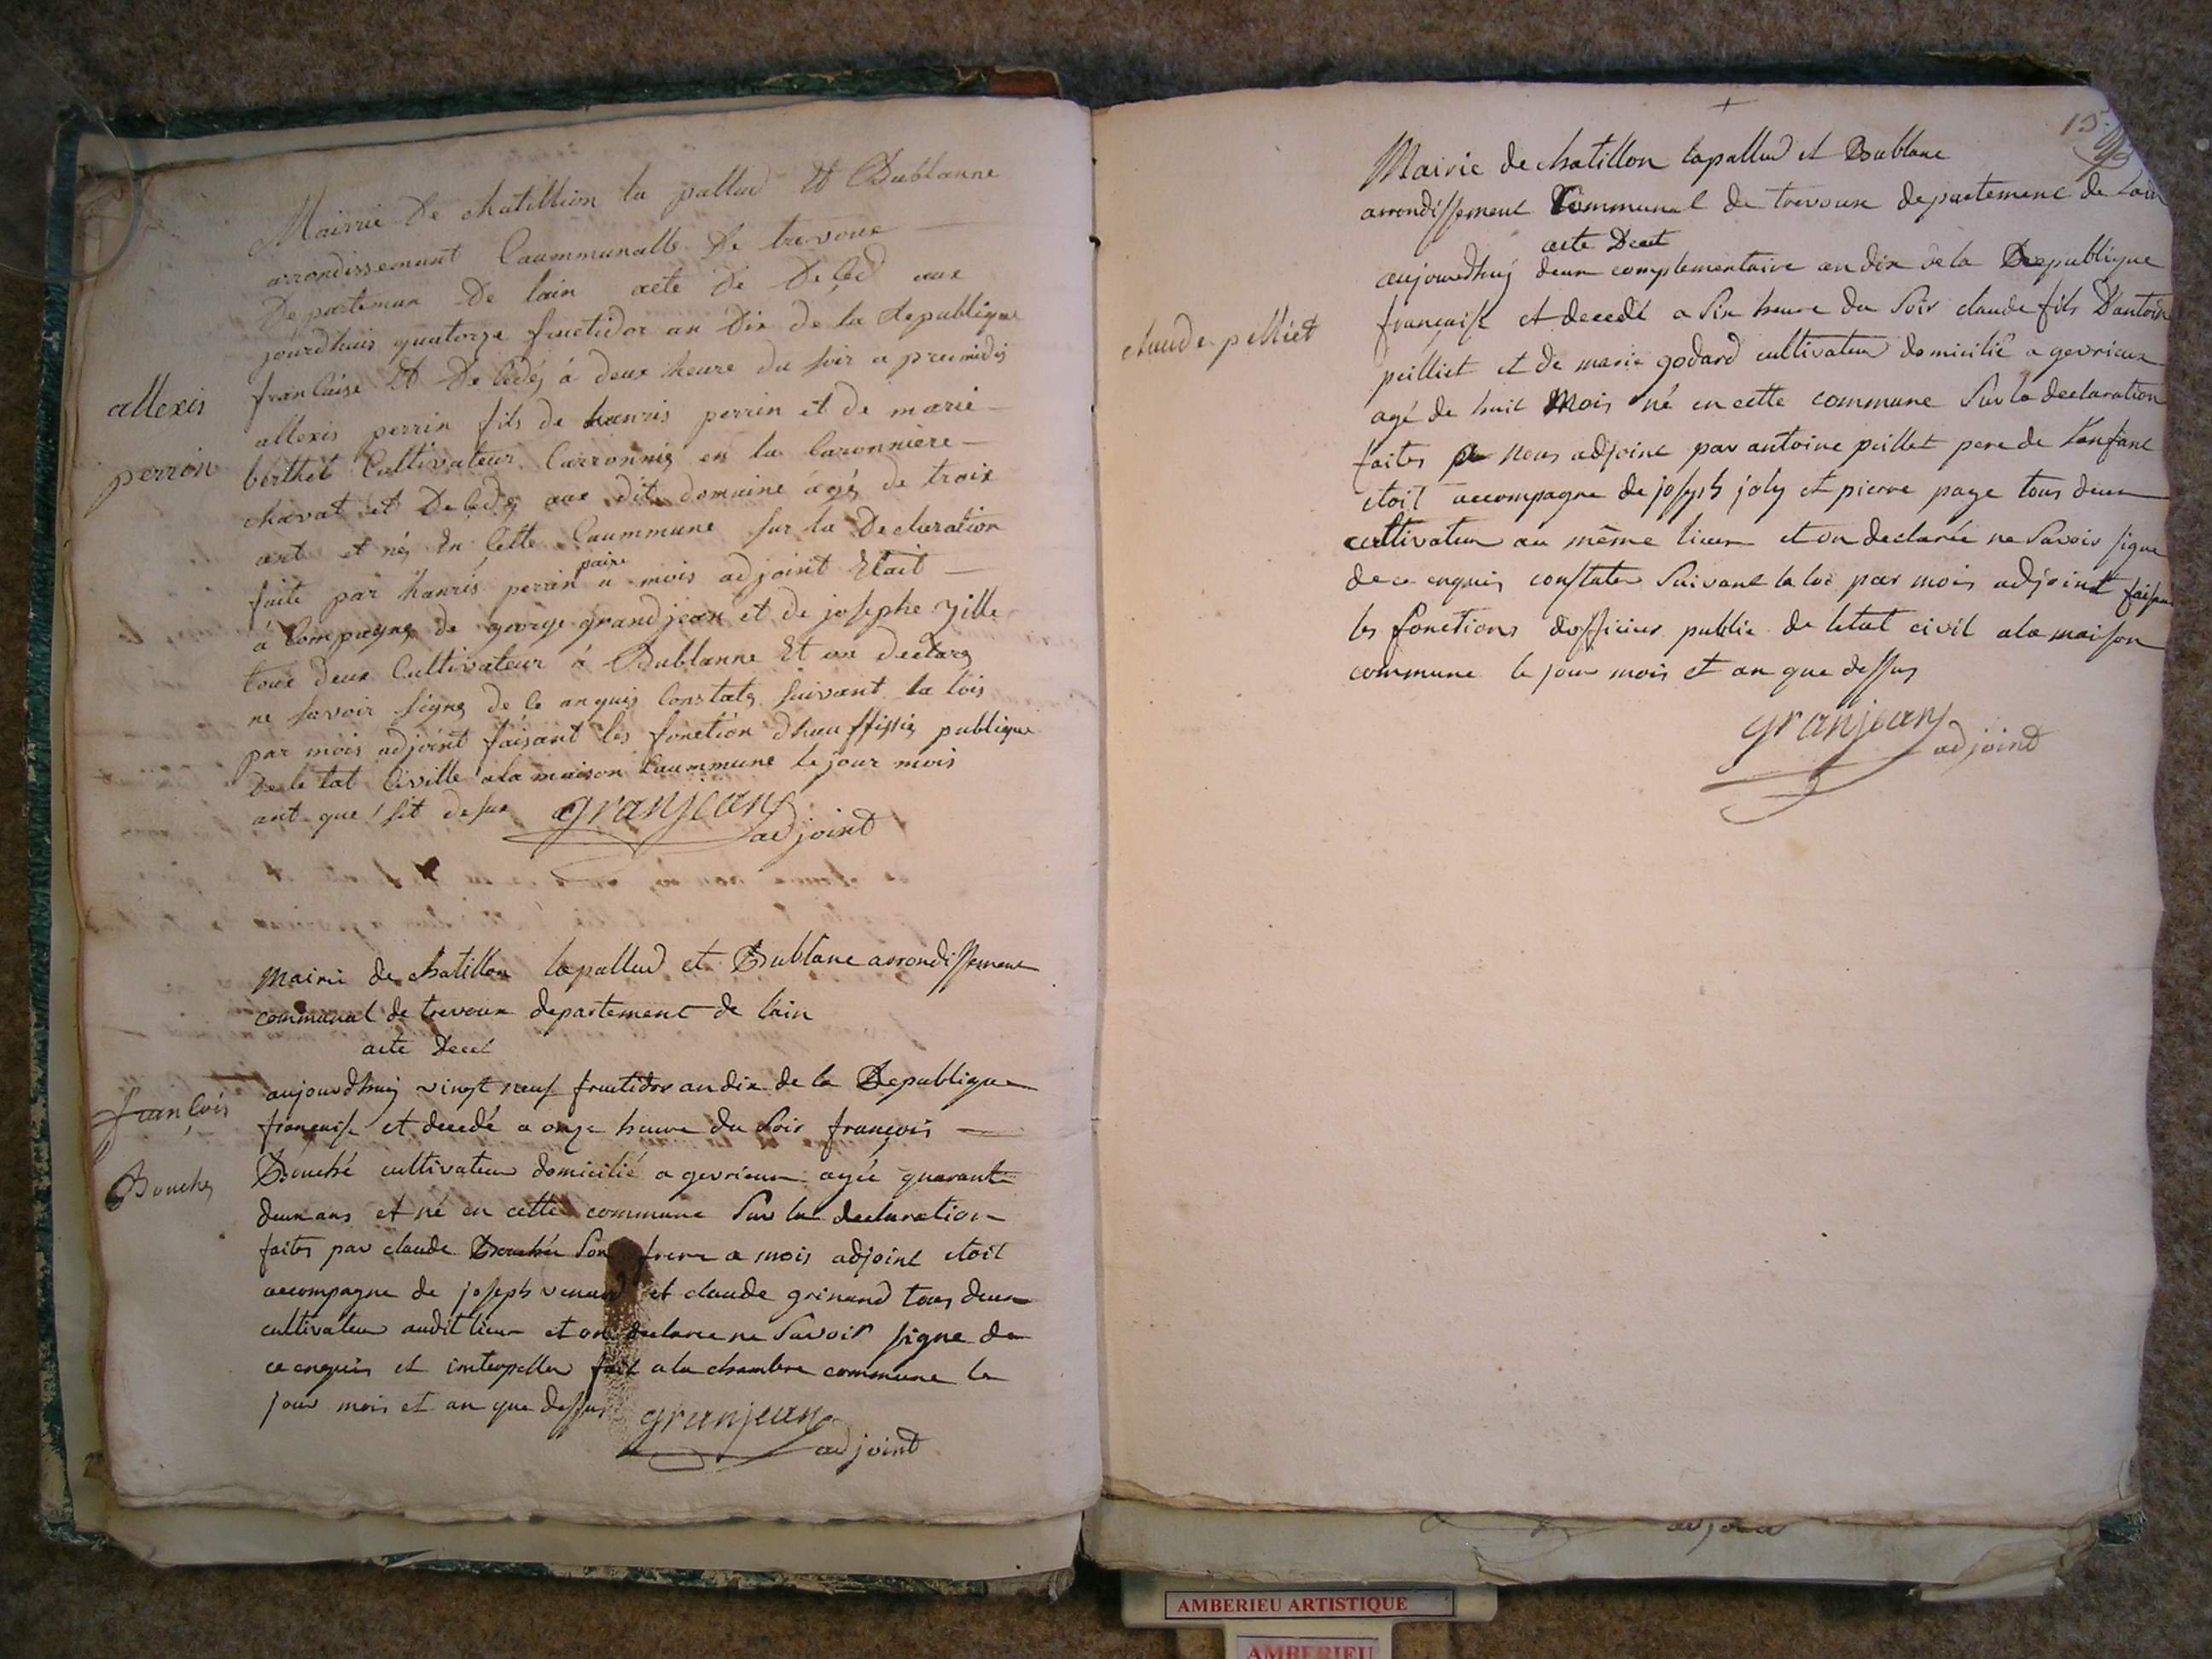 Mairrie De chatillion la pallud Et Bublanne
arrondissemant Caummunalle De trevoux
Departemax De lain acte De Deced aux
jourdhuis quatorze fructidor an Dix de la Republique
francaise Et Decedéz á deux heure du soir a preimidis
allexis
perrin
allexis perrin fils de hanris perrin et de marie
berthet Cultivateur Carronnié en la Caronniere
chavat et Decedez aux dit domaine agéz de troix
ant et néz En Cette Caummune sur la Declaration
faite par hanris perrin paire a mois adjoint Etait
á Compagnez de george grandjean et de josephe
toux deux Cultivateur á Bublanne Et on declarez
ne savoir signez de Ce anquis Constatez suivant la lois
par mois adjoint faisant les fonction dhaufficiez publique
De le tat Civille a la maison Caummune le jour mois
ant que sit desus granjean
adjoint
Mairie de chatillon lapallud et Bublane arrondissement
communal de trevoux departement de lain
acte Decet
François
Bouchez
aujourdhuij vingt neuf fructidor an dix de la Republique
française et decedé a onze heure du Soir françois
Bouché cultivateur domicilié a gevrieux agée quarante
deux ans et né en cette commune Sur la declaration
faites par claude Bouchée Son frere a mois adjoint etoit
accompagne de joseph venard et claude grinand tous deux
cultivateur audit lieux et on declaree ne Savoir signe de
ce enquis et interpeller fait a la chambre commune le
jour mois et an que dessus granjean
adjoint
15
Mairie de chatillon lapallud et Bublane
arrondissement Communal de trevoux departement de lain
acte Decet
claude pelliet
aujourdhuij deux complementaire an dix de la Republique
française et decedé a Six heure du Soir claude fils Dantoine
peilliet et de marie godard cultivateur domicilié a gevrieux
agé de huit Mois né en cette commune Sur la declaration
faites a nous adjoint par antoine peillet pere de Lenfant
etoit accompagne de joseph joly et pierre page tous deux
cultivateur au même lieux et on declarée ne Savoir signe
de ce enquis constater Suivant la loi par mois adjoint faisant
les fonctions dofficier public de letat civil a la maison
commune le jour mois et an que dessus
granjean
adjoint
adjoint
AMBERIEU ARTISTIQUE
AMBERIEU